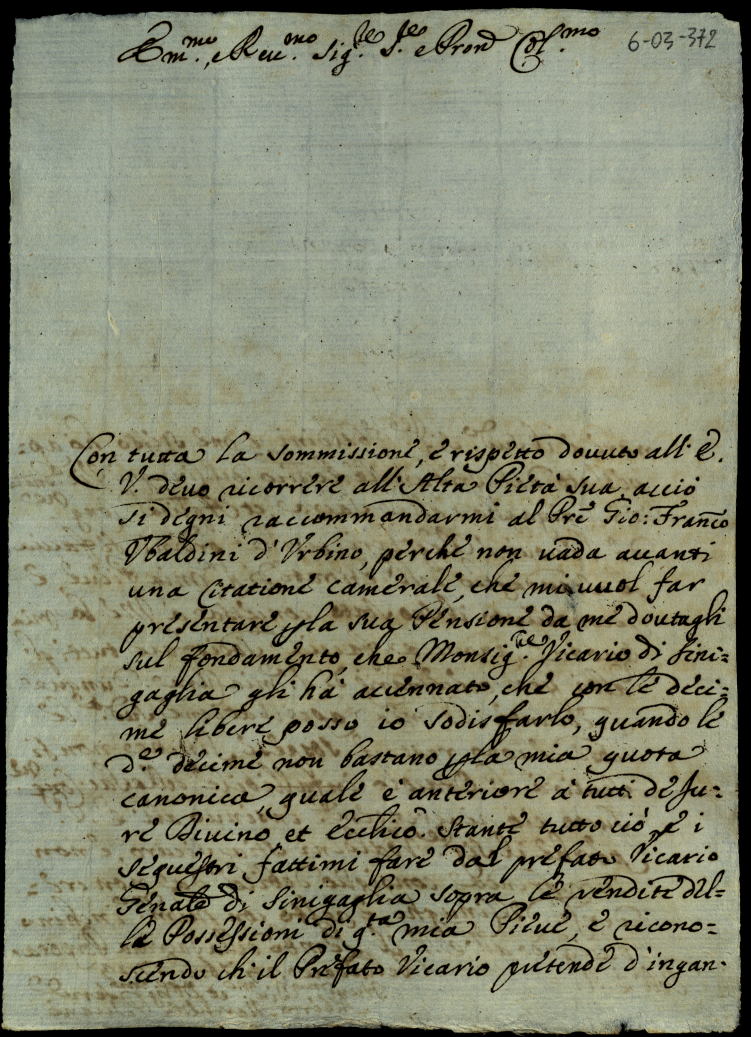 Em.mo, e Reu.mo Sig.re S.re e Pron Col.mo
6-03-372
Con tutta la sommissione, e rispetto douuto all' E.
V. deuo ricorrere all' Alta Pietà sua, acciò
si degni raccommandarmi al Prē Gio: Franco
Vbaldini d'Vrbino, perche non uada auanti
una Citatione Camerale, che mi uuol far
presentare p la sua Pensione da me doutagli
sul fondamento, che Monsig.re Vicario di Sini=
gaglia gli hà accennato, che con le deci=
me libere posso io sodisfarlo, quando le
d.e decime non bastano p la mia quota
canonica, quale è anteriore à tutti de Ju=
re Diuino et Ecclīco. Stante tutto ciò, e i
sequestri fattimi fare dal prefato Vicario
Gēnale di Sinigaglia sopra le rendite del=
le Possessioni di q.ta mia Pieue, e ricono=
scendo ch' il Prefato Vicario pretende d'ingan-